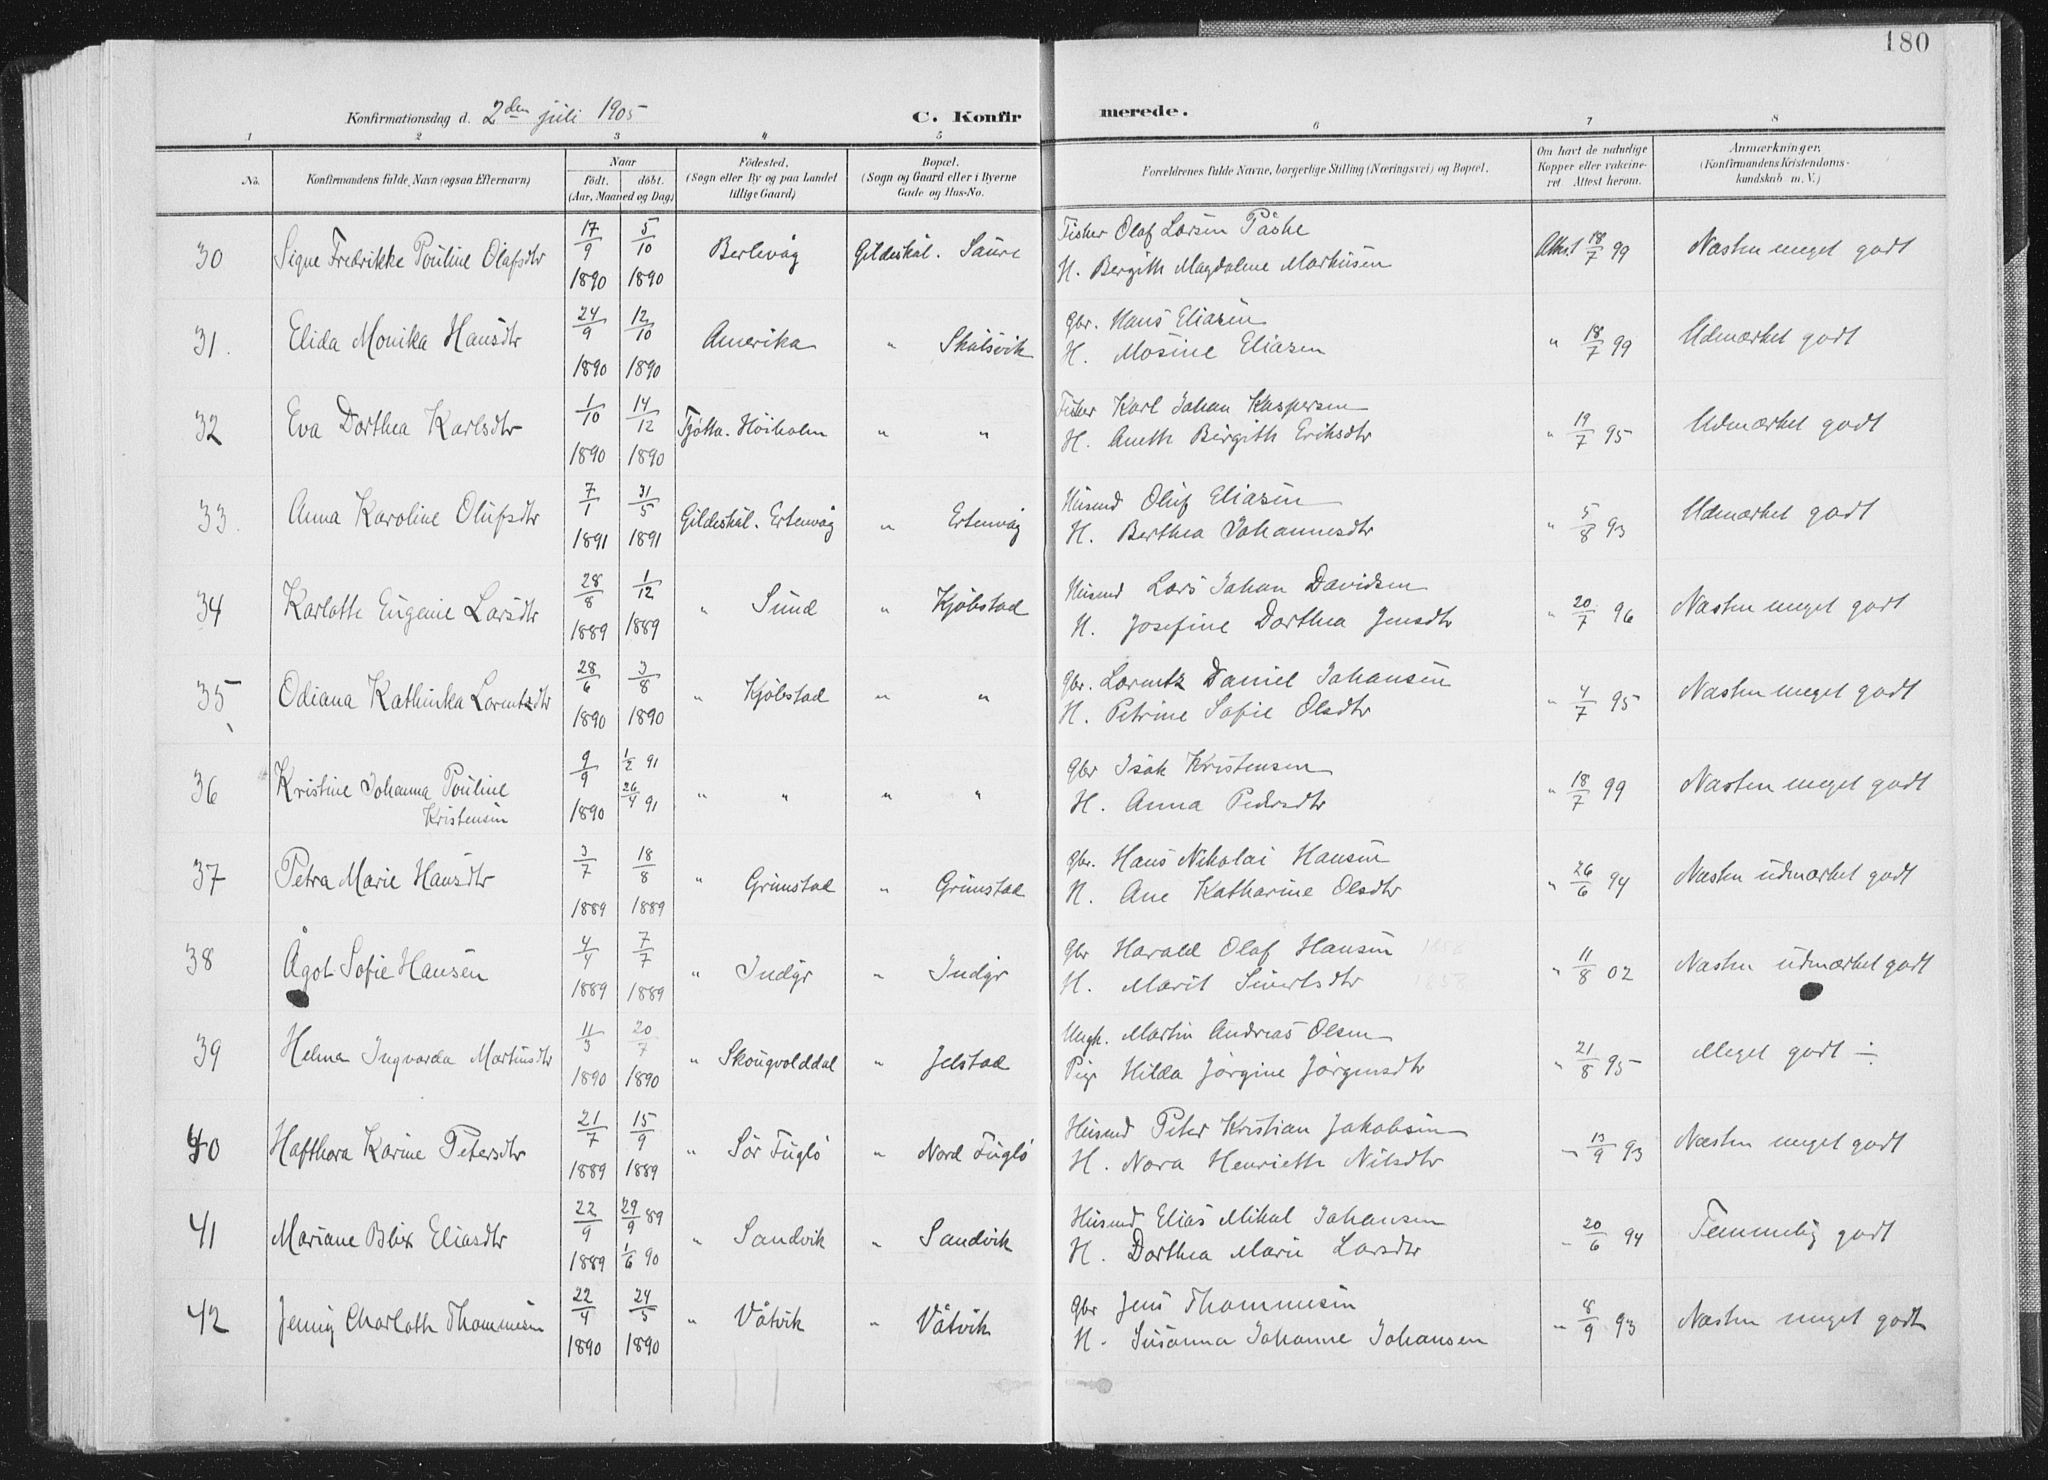 180
Konfirmationsdag d. 2den juli 1905
C. Konfirmerede.
1 2 3 4 5 6 7 8
No.
Konfirmandens fulde Navn (ogsaa Efternavn)
Naar
födt. döbt.
(Aar, Maaned og Dag)
Födested.
(Sogn eller By og paa Landet
tillige Gaard)
Bopæl.
(Sogn og Gaard eller i Byerne
Gade og Hus-No.
Forældrenes fulde Navne, borgerlige Stilling (Næringsvei) og Bopæl.
Om havt de naturlige
Kopper eller vakcine-
ret. Attest herom.
Anmærkninger.
(Konfirmandens Kristendoms-
kundskab m. V.)
30 Signe Fredrikke Pouline Olafsdtr 17/9 1890 5/10 1890 Berlevåg Gildeskål. Saure
Fisker Olaf Larsen Påske
H. Bergith Magdalene Markusen
Attest 18/7 99 Næsten meget godt
31. Elida Monika Hansdtr 24/9 1890 12/10 1890 Amerika " Skålsvik
Gbr. Hans Eliasen
H. Mosine Eliasen
" 18/7 99 Udmærket godt
32 Eva Dorthea Karlsdtr 1/10 1890 14/12 1890 Tjøtta. Höiholm " "
Fisker Karl Johan Kaspersen
H. Aneth Birgith Eriksdtr
" 19/7 95 Udmærket godt
33. Anna Karoline Olufsdtr 7/1 1891 31/5 1891 Gildeskål. Ertenvåg " Ertenvåg
Husmd Oluf Eliasen
H. Berthea Johannesdtr
" 5/8 93 Udmærket godt
34 Karlotte Eugenie Larsdtr 28/8 1889 1/12 1889 " Sund " Kjöbstad
Husmd Lars Johan Davidsen
H. Josefine Dorthea Jensdtr
" 20/7 96 Næsten meget godt
35 Odiana Kathinka Lorentzdtr 28/6 1890 3/8 1890 " Kjöbstad " "
Gbr. Lorentz Daniel Johansen
H. Petrine Sofie Olsdtr
" 4/7 95 Næsten meget godt
36 Kristine Johanna Pouline
Kristensen 9/9 1890 1/2 91 26/4 91 " " " "
Gbr Isak Kristensen
H. Anna Pedersdtr
" 18/7 99 Næsten meget godt
37 Petra Marie Hansdtr 3/7 1889 18/8 1889 " Grimstad " Grimstad
Gbr. Hans Nikolai Hansen
H. Ane Katharine Olsdtr
" 26/6 94 Næsten udmærket godt
38 Ågot Sofie Hansen 4/4 1889 7/7 1889 " Indyr " Indyr
Gbr Harald Olaf Hansen
H. Marit Sivertsdtr 1858
" 11/8 02 Næsten udmærket godt
39 Helma Ingvarda Martinsdtr 11/3 1890 20/7 1890 " Skougvolddal " Jelstad
Ungk. Martin Andreas Olsen
Pige Hilda Jörgine Jörgensdtr
" 21/8 95 Meget godt ÷
40 Hafthora Karine Petersdtr 21/7 1889 15/9 1889 " Sör Fuglö " Nord Fuglö
Husmd Peter Kristian Jakobsen
H. Nora Henriette Nilsdtr
" 13/9 93 Næsten meget godt
41 Mariane Blix Eliasdtr 22/9 1889 29/9 89 1/6 90 " Sandvik " Sandvik
Husmd Elias Mikal Johansen
H. Dorthea Marie Larsdtr
" 20/6 94 Temmelig godt
42 Jenny Charlotte Thommesen 22/4 1890 24/5 1890 " Våtvik " Våtvik
Gbr Jens Thommesen
H. Susanna Johanne Johansen
" 8/9 93 Næsten meget godt